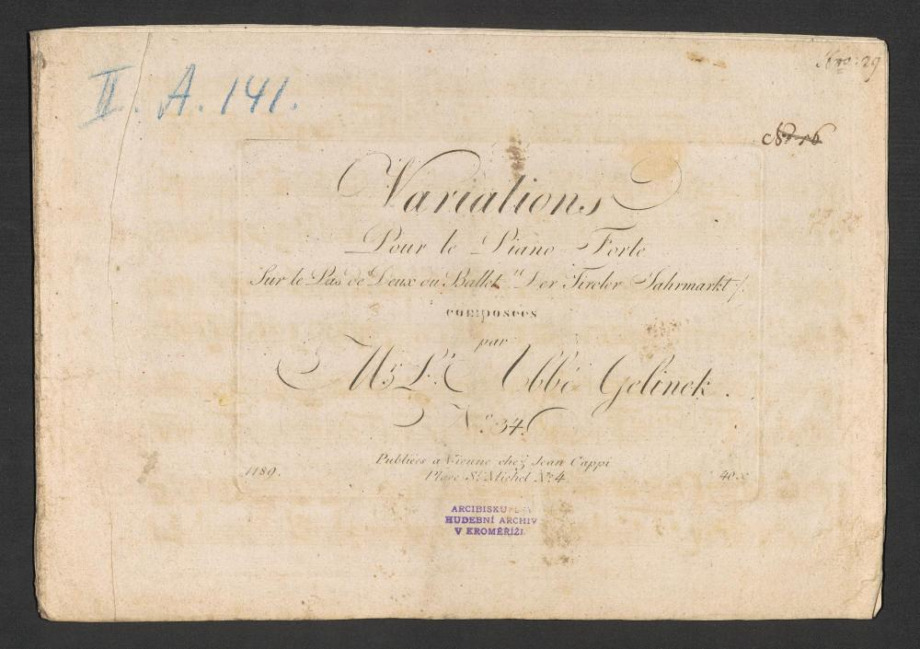 II. A. 141.
Nro: 29
Variations
Pour le Piano Forte
Sur le Pas de Deux du Ballet "Der Tiroler Jahrmarkt/.
composées
par
Mr. L' Abbé Gelinek.
No. 34.
Publiées a Vienne chez Jean Cappi
1189. Place St. Michel No. 4. 40 x
ARCIBISKUPSKÝ
HUDEBNÍ ARCHIV
V KROMĚŘÍŽI.